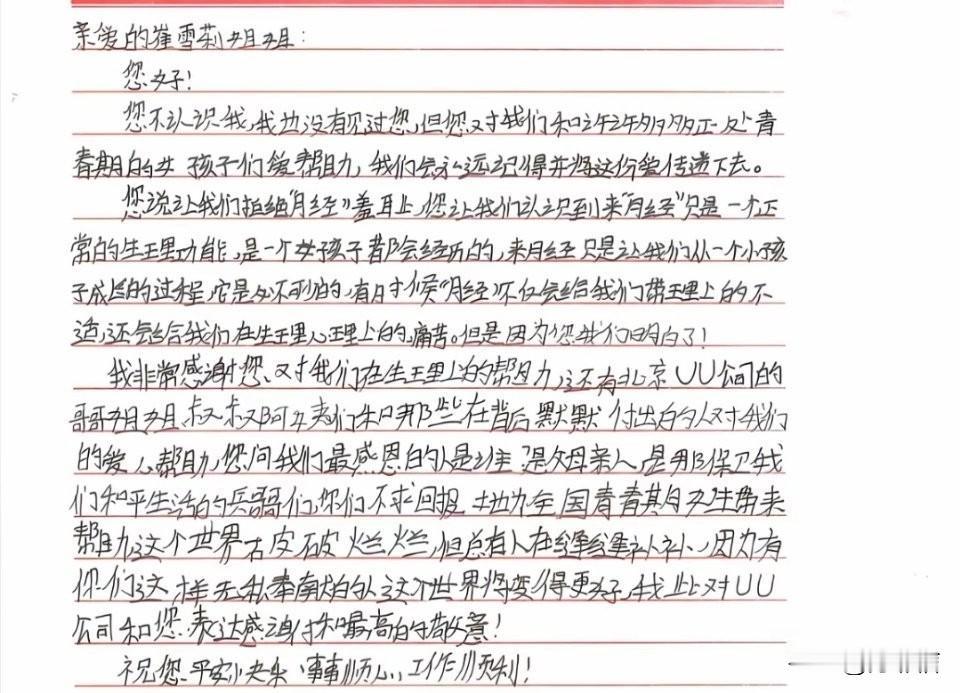 亲爱的崔雪莉姐姐：
您好！
您不认识我,我也没有见过您,但您对我们和许许多多正处青
春期的女孩子们爱帮助,我们会永远记得并将这份爱传递下去。
您说让我们拒绝“月经”羞耻,您让我们认识到来“月经”只是一个正
常的生理功能,是一个女孩子都会经历的,来月经只是让我们从一个小孩
子成长的过程,它是必不可怕的,有时候“月经”不仅会给我们带理上的不
适,还会给我们在生理心理上的痛苦。但是因为您我们明白了!
我非常感谢您对我们在生理上的帮助,还有北京UU公司的
哥哥姐姐叔叔阿姨们和那些在背后默默付出的人对我们
的爱心帮助,您问我们最感恩的人是谁？是父母亲人,是那保卫我
们和平生活的兵哥哥们,你们不求回报地为全国青春期女生带来
帮助,这个世界破破烂烂,但总有人在缝缝补补,因为有
你们这样无私奉献的人这个世界将变得更好,我此对UU
公司和您表达感谢和最高的敬意!
祝您平安快乐,事事顺心,工作顺利!